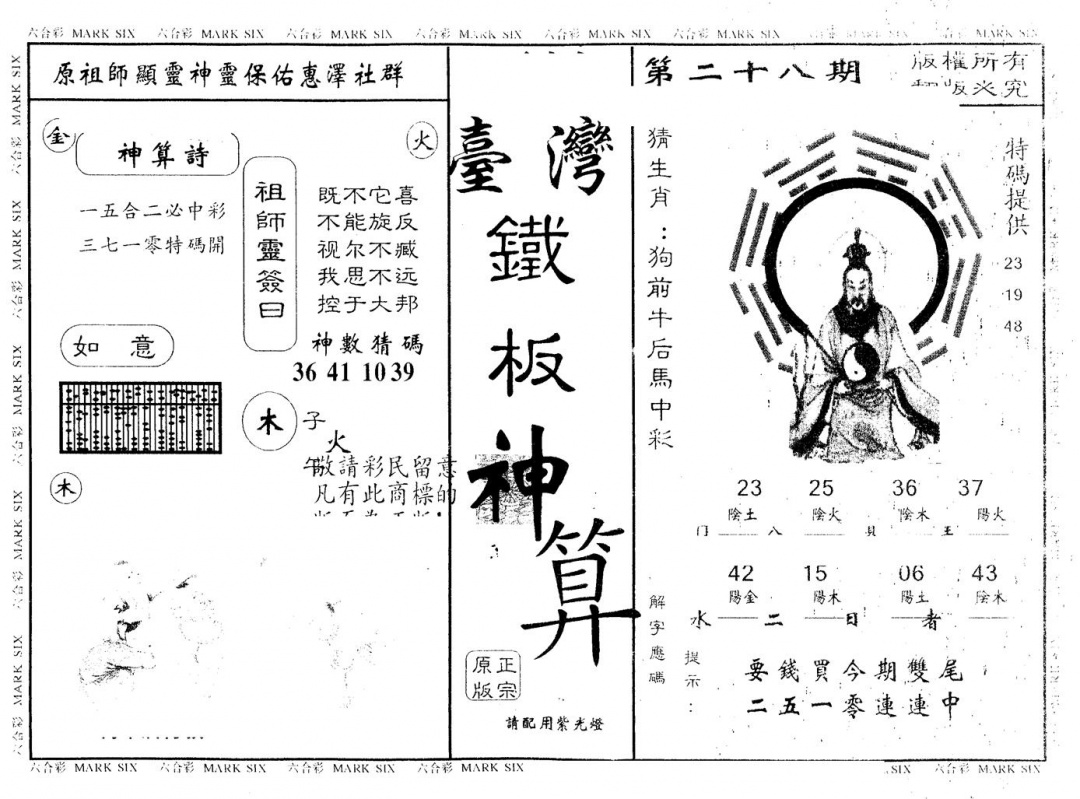 六合彩 MARK SIX 六合彩 MARK SIX 六合彩 MARK SIX 六合彩 MARK SIX 六合彩 MARK SIX 六合彩 MARK SIX MARK SIX 六合彩 MARK SIX
原祖師顯靈神靈保佑惠澤社群
金
神算詩
火
一五合二必中彩
三七一零特碼開
祖師靈簽曰
既不它喜
不能旋反
视尔不臧
我思不远
控于大邦
神數猜碼
36 41 10 39
如意
木
子
火
午
木
敬請彩民留意
凡有此商標的
臺灣
鐵
板
神
算
正宗
原版
請配用紫光燈
第二十八期
版權所有
究
猜生肖：狗前牛后馬中彩
特碼提供
23
19
48
23 25 36 37
陰土 陰火 陰木 陽火
門 八 貝 王
42 15 06 43
陽金 陽木 陽土 陰木
水 二 日 者
解字應碼
提示：
要錢買今期雙尾
二五一零連連中
六合彩 MARK SIX 六合彩 MARK SIX 六合彩 MARK SIX 六合彩 MARK SIX SIX 六合彩 MARK SIX
六合彩 MARK SIX 六合彩 MARK SIX 六合彩 MARK SIX 六合彩 MARK SIX 六合彩 MARK SIX